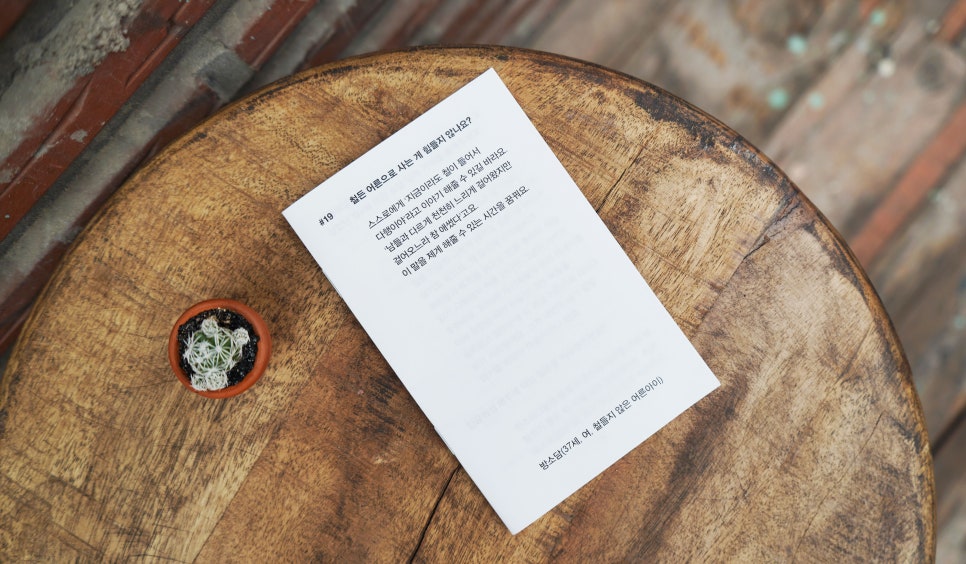 #19 철든 어른으로 사는 게 힘들지 않나요?
스스로에게 '지금이라도 철이 들어서
다행이야'라고 이야기 해줄 수 있길 바라요.
'남들과 다르게 천천히 느리게 걸어왔지만
걸어오느라 참 애썼다'고요.
이 말을 제게 해줄 수 있는 시간을 꿈꿔요.
방소담(37세, 여. 철들지 않은 어른아이)